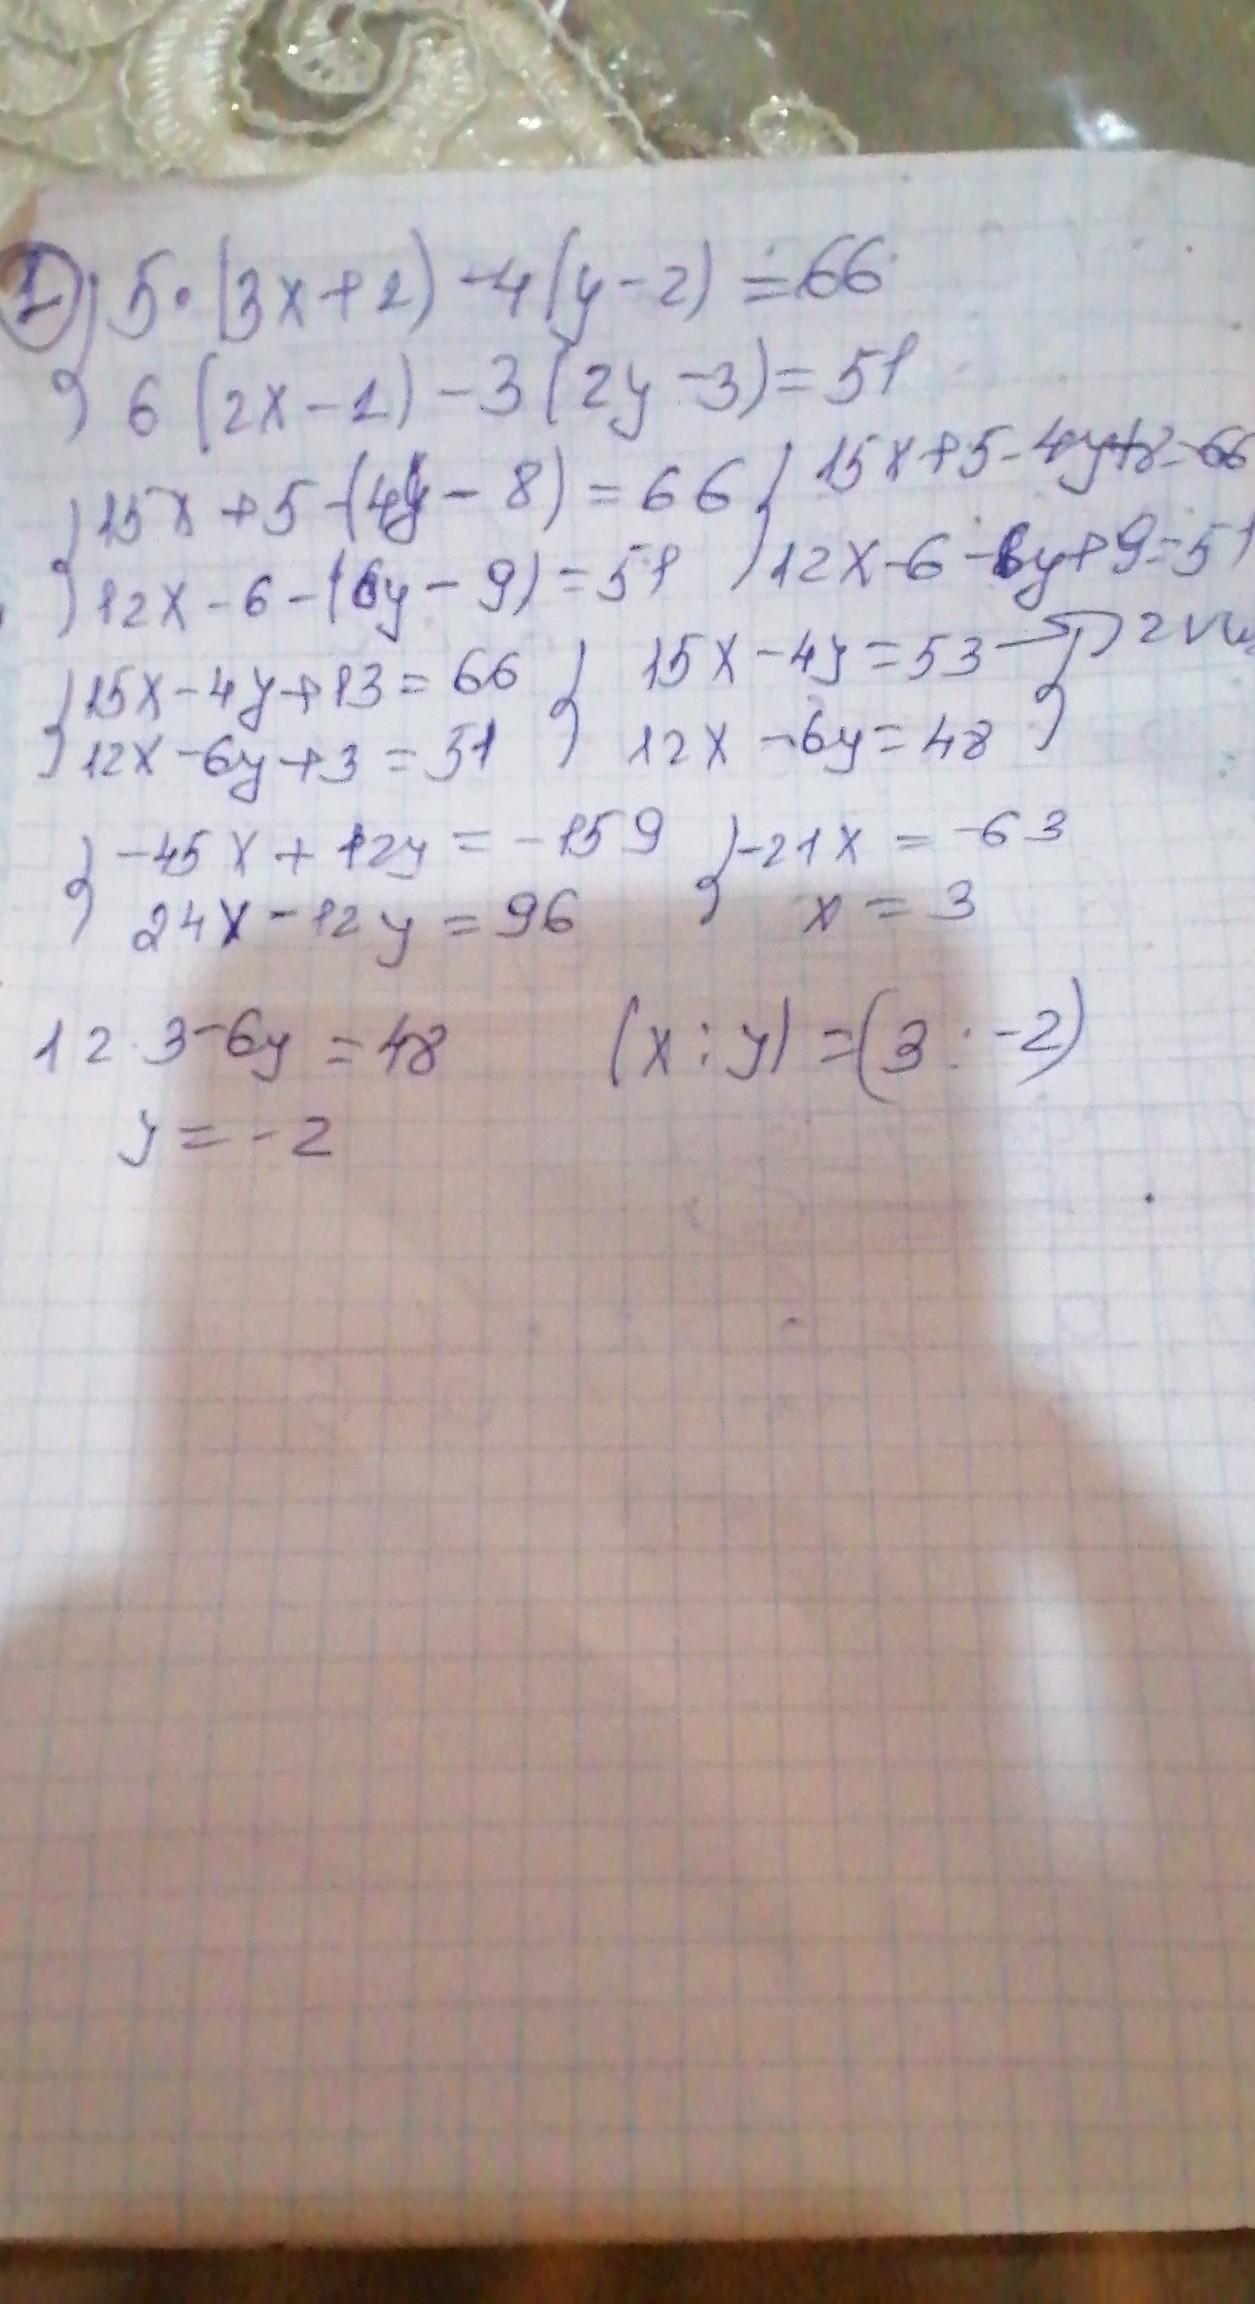 1) 5·(3x+1)-4(y-2)=66
6(2x-1)-3(2y-3)=51
15x+5-(4y-8)=66 15x+5-4y+8=66
12x-6-(6y-9)=51 12x-6-6y+9=51
15x-4y+13=66 15x-4y=53
12x-6y+3=51 12x-6y=48
-45x+12y=-159 -21x=-63
24x-12y=96 x=3
12·3-6y=48 (x:y)=(3:-2)
y=-2